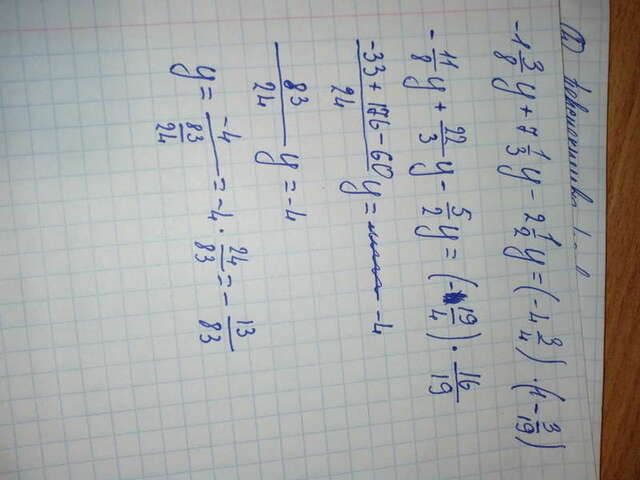 -1 3/8 y + 7 1/3 y - 2 1/2 y = (-4 3/4) · (1 - 3/19)
-11/8 y + 22/3 y - 5/2 y = (-19/4) · 16/19
(-33 + 176 - 60)/24 y = -4
83/24 y = -4
y = -4/(83/24) = -4 · 24/83 = -13/83